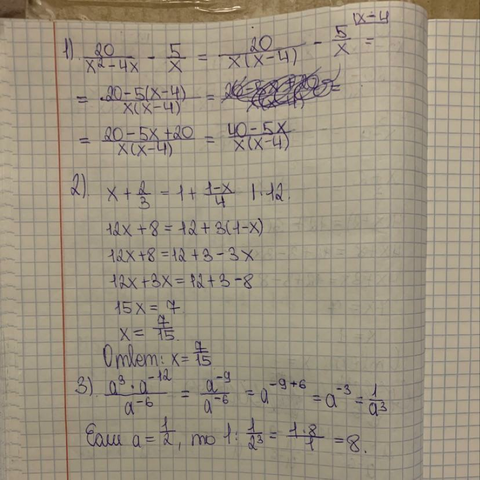 1) 20/(x²-4x) - 5/x = 20/(x(x-4)) - 5/x |x-4 =
= (20-5(x-4))/(x(x-4)) =
= (20-5x+20)/(x(x-4)) = (40-5x)/(x(x-4))
2) x + 2/3 = 1 + (1-x)/4 | · 12.
12x + 8 = 12 + 3(1-x)
12x + 8 = 12 + 3 - 3x
12x + 3x = 12 + 3 - 8
15x = 7
x = 7/15
Ответ: x = 7/15
3) (a⁹ · a⁻¹²)/a⁻⁶ = a⁻⁹/a⁻⁶ = a⁻⁹⁺⁶ = a⁻³ = 1/a³
Если a = 1/2, то 1 : 1/2³ = (1·8)/1 = 8.